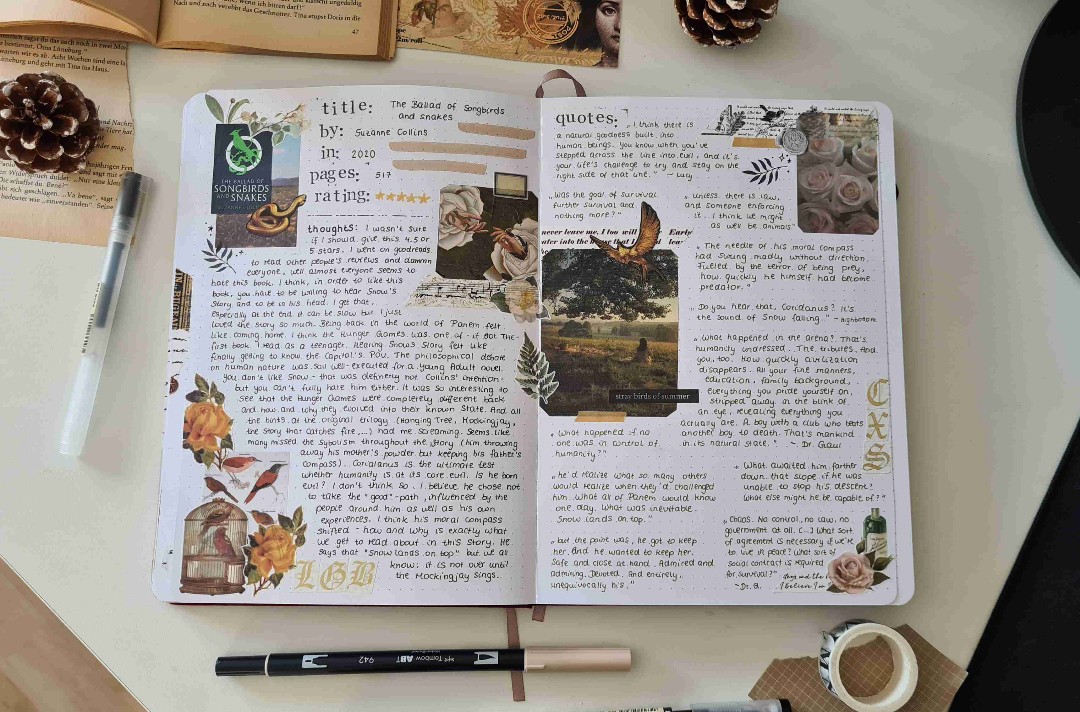 title: The Ballad of Songbirds
and Snakes
by: Suzanne Collins
in: 2020
pages: 517
rating:
THE BALLAD OF
SONGBIRDS
AND SNAKES
thoughts: I wasn't sure
if I should give this 4.5 or
5 stars. I went on goodreads
to read other people's reviews and damnn
everyone, well almost everyone seems to
hate this book. I think, in order to like this
book, you have to be willing to hear Snow's
Story and to be in his head. I get that,
especially at the end it can be slow but I just
loved the story so much. Being back in the world of Panem felt
like coming home. I think the Hunger Games was one of - if not the -
first book I read as a teenager, hearing Snows Story felt like
finally getting to know the Capitol's Pov. The philosophical debate
on human nature was soo well-executed for a young Adult novel.
You don't like Snow - that was definetly not Collins' intention -
but you can't fully hate him either. It was so interesting to
see that the Hunger Games were completely different back
and how and why they evolved into their known State. And all
the hints at the original trilogy (Hanging Tree, Mockingjay,
the Story that catches fire,...) had me screaming. Seems like
many missed the Sybolism throughout the Story (him throwing
away his mother's powder but keeping his father's
compass). Coriolanus is the ultimate test
whether humanity is at its core evil. Is he born
evil? I don't think so. I believe he chose not
to take the "good"-path, influenced by the
people around him as well as his own
experiences. I think his moral compass
shifted - how and why is exactly what
we get to read about in this story. He
says that "Snow lands on top" but we all
know: it is not over until
the Mockingjay sings.
LGB
quotes: „I think there is
a natural goodness built into
human beings. You know when you've
stepped across the line into evil, and it's
your life's challenge to try and stay on the
right side of that line." - Lucy
„Was the goal of survival
further survival and
nothing more?"
never leave me, I too will
Early
stray birds of summer
„What happened if no
one was in control of
humanity?"
„he'd realize what so many others
would realize when they'd challenged
him. What all of Panem would know
one day. What was inevitable.
Snow lands on top."
„but the point was, he got to keep
her. And he wanted to keep her.
Safe and close at hand. Admired and
admiring. Devoted. And entirely,
unequivocally his."
„unless there is law,
and someone enforcing
it. I think we might
as well be animals"
„The needle of his moral compass
had swung madly without direction.
Fuelled by the terror of being prey,
how quickly he himself had become
predator."
„Do you hear that, Coriolanus? It's
the sound of Snow falling." - Highbottom
„What happened in the arena? That's
humanity undressed. The tributes. And
you, too. How quickly civilization
disappears. All your fine manners,
education, family background,
everything you pride yourself on,
stripped away in the blink of
an eye, revealing everything you
actually are. A boy with a club who beats
another boy to death. That's mankind
in its natural state." - Dr. Gaul
„What awaited him farther
down that slope if he was
unable to stop his descent?
What else might he be capable of?"
„Chaos. No control, no law, no
government at all. (...) What sort
of agreement is necessary if we're
to live in peace? What sort of
social contract is required
for survival?"
- Dr. G.
CXS
47
942
ABT
TOMBOW